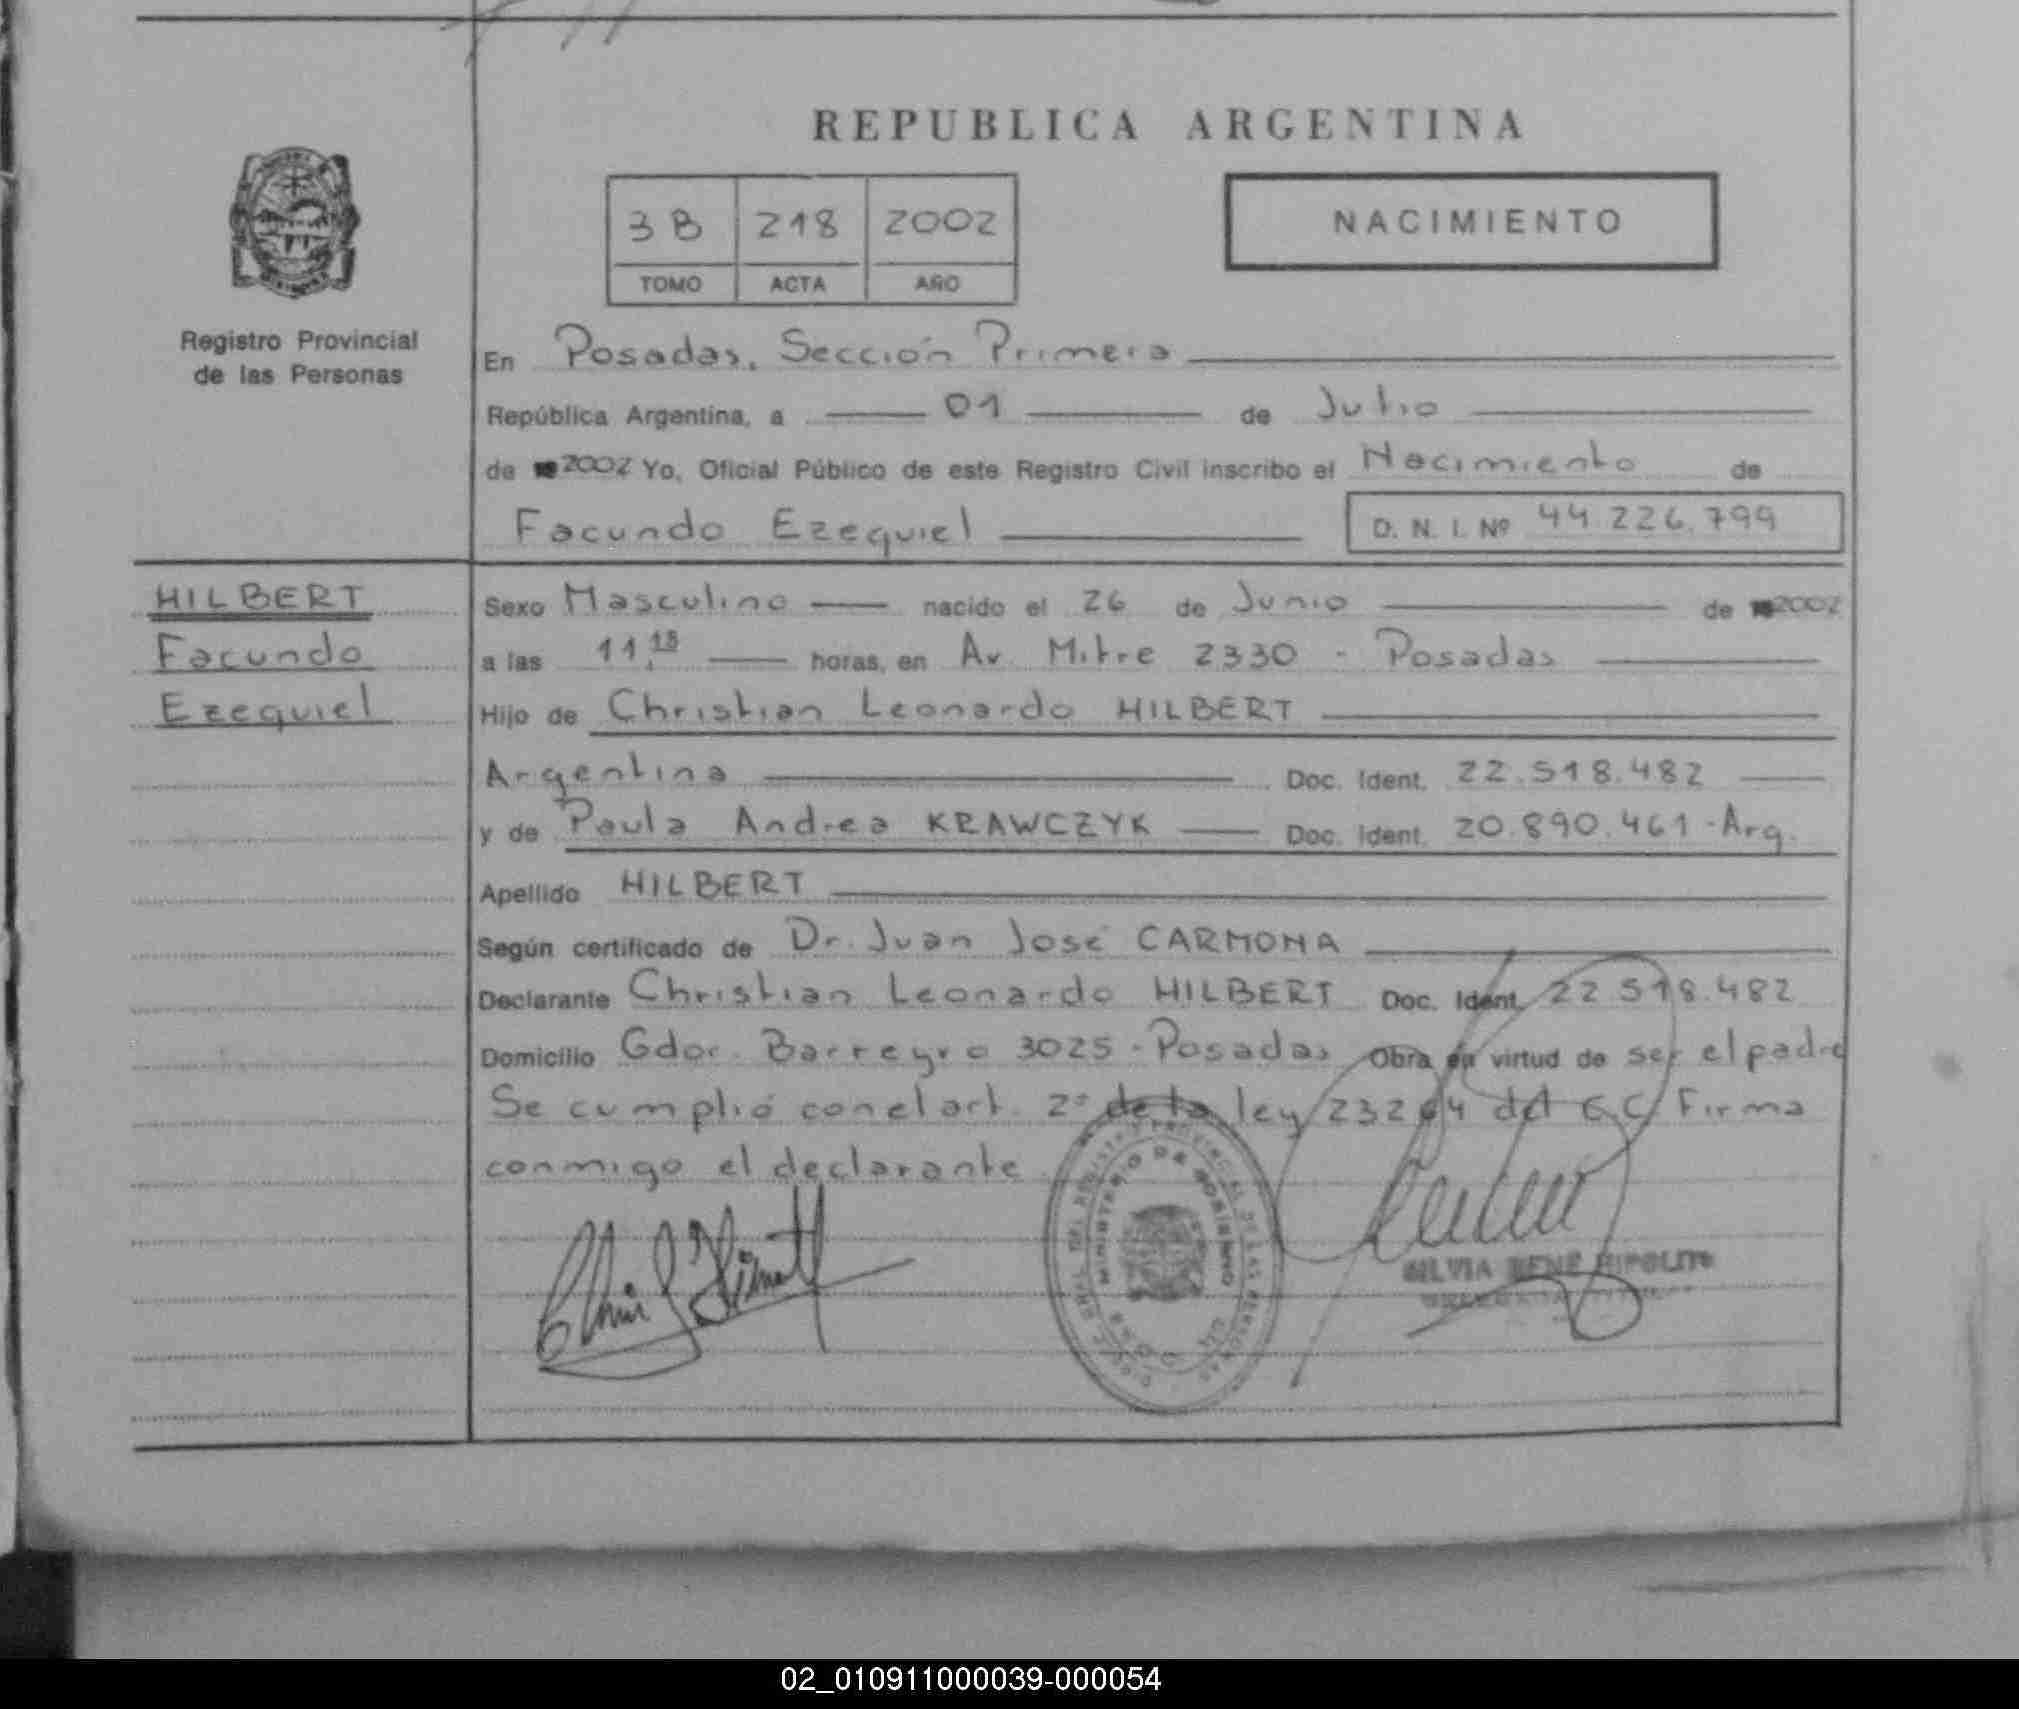 REPUBLICA ARGENTINA
3B 218 2002
TOMO ACTA AÑO
NACIMIENTO
Registro Provincial
de las Personas
En Posadas, Sección Primera
República Argentina, a 01 de Julio
de 2002 Yo, Oficial Público de este Registro Civil inscribo el Nacimiento de
Facundo Ezequiel D. N. I. Nº 44.226.799
HILBERT
Facundo
Ezequiel
Sexo Masculino nacido el 26 de Junio de 2002
a las 11,18 horas, en Av. Mitre 2330 - Posadas
Hijo de Christian Leonardo HILBERT
Argentina Doc. Ident. 22.518.482
y de Paula Andrea KRAWCZYK Doc. Ident. 20.890.461 - Arg.
Apellido HILBERT
Según certificado de Dr. Juan José CARMONA
Declarante Christian Leonardo HILBERT Doc. Ident. 22.518.482
Domicilio Gdor. Barreyro 3025 - Posadas Obra en virtud de ser el padre
Se cumplió con el art. 2º de la ley 23264 del C.C. Firma
conmigo el declarante
MINISTERIO DE GOBIERNO
SILVIA RENE HIPOLITO
02_010911000039-000054